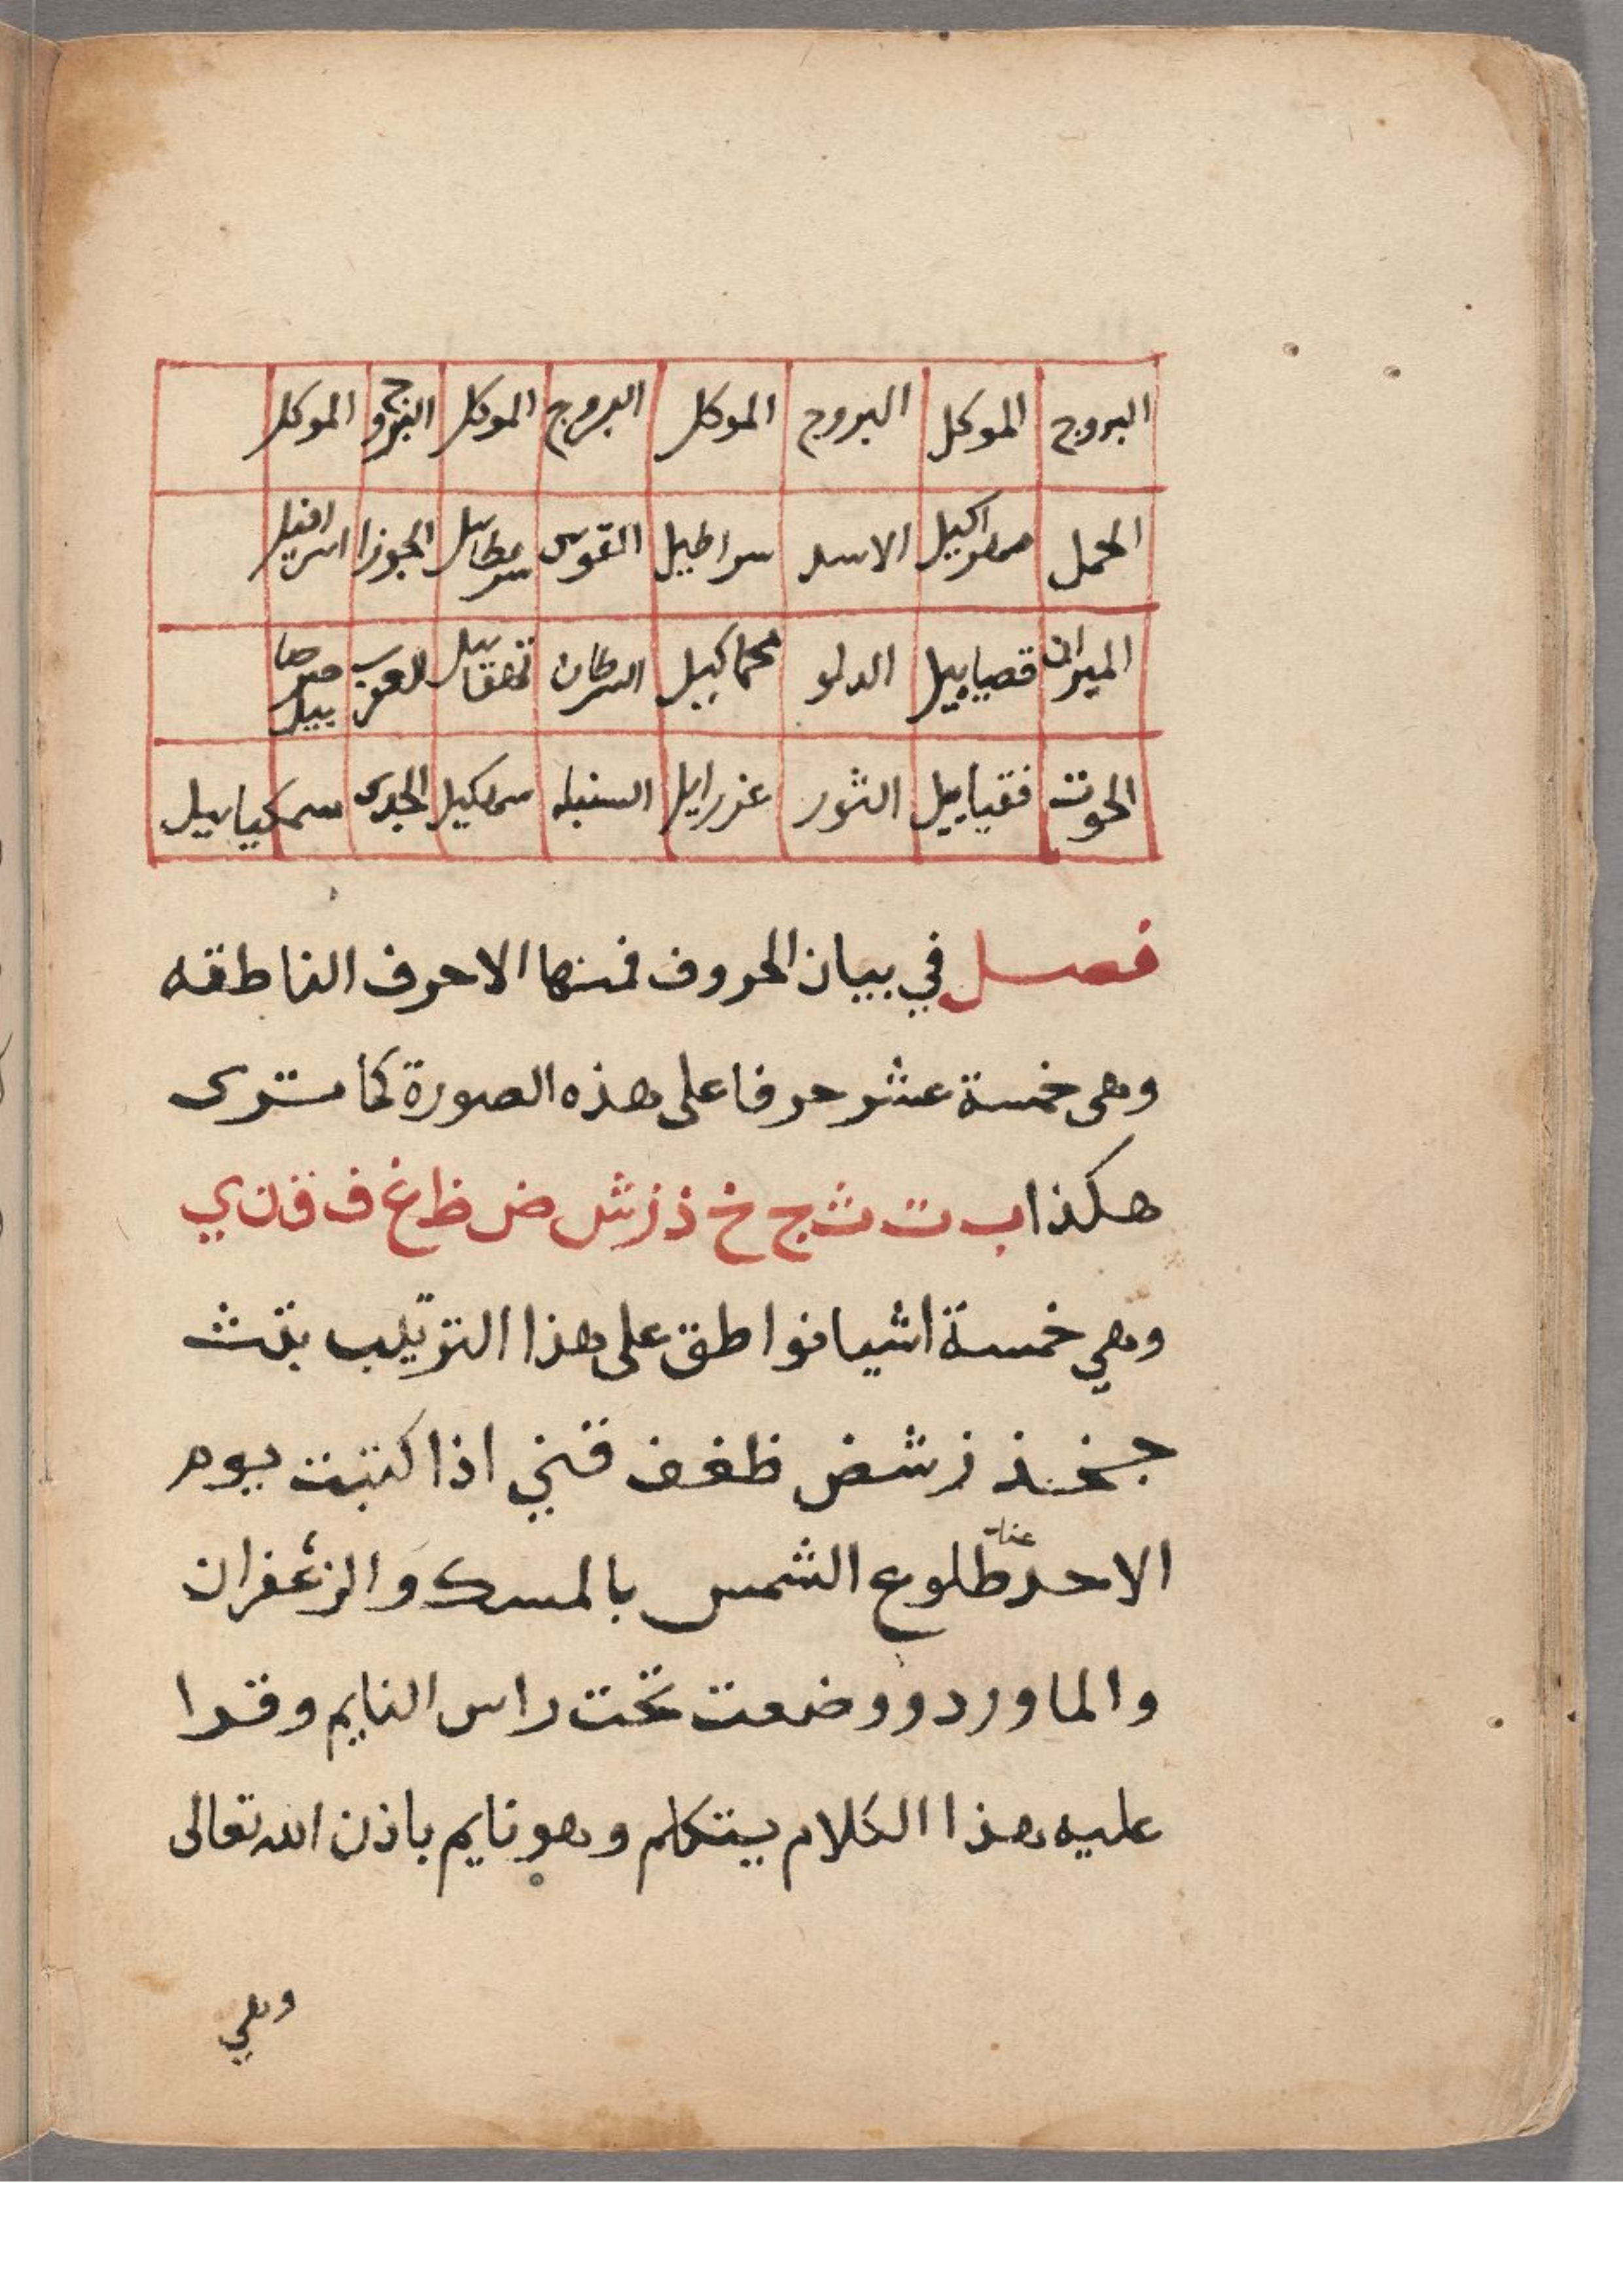 البروج الموكل البروج الموكل البروج الموكل البروج الموكل
الحمل صصراكيل الاسد سراطيل القوس سرطاييل الجوزا اسرافيل
الميزان قصياييل الدلو محماكيل السرطان العقرب صرصاييل
الحوت فقياييل الثور عزراييل السنبله سمكيل الجدى سمكياييل
فصل في بيان الحروف فمنها الاحرف الناطقه
وهى خمسة عشر حرفا على هذه الصورة كما سترى
هكذا ب ت ث ج خ ذ ز ش ض ظ غ ف ق ن ي
وهي خمسة اشيا نواطق على هذا الترتيب بتث
جخذ زشض ظغف قني اذا كتبت يوم
الاحد عند طلوع الشمس بالمسك والزعفران
والماورد ووضعت تحت راس النايم وقرا
عليه هذا الكلام يتكلم وهو نايم باذن الله تعالى
وهي